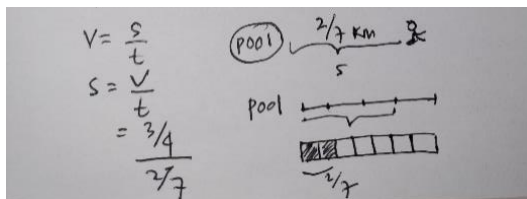 V = s/t
S = V/t
= 3/4 / 2/7
pool 2/7 KM
s
pool
2/7